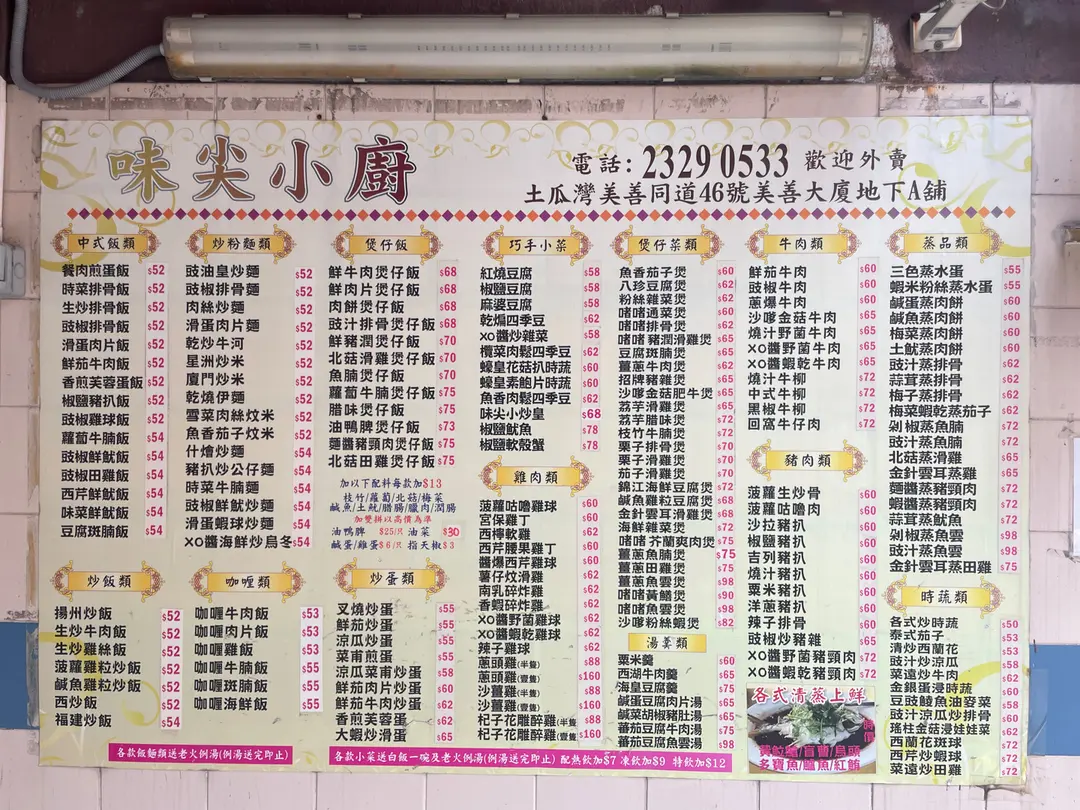 味尖小廚
電話: 2329 0533 歡迎外賣
土瓜灣美善同道46號美善大廈地下A舖
中式飯類
餐肉煎蛋飯 $52
時菜排骨飯 $52
生炒排骨飯 $52
豉椒排骨飯 $52
滑蛋肉片飯 $52
鮮茄牛肉飯 $52
香煎芙蓉蛋飯 $52
椒鹽豬扒飯 $52
豉椒雞球飯 $52
蘿蔔牛腩飯 $54
豉椒鮮魷飯 $54
豉椒田雞飯 $54
西芹鮮魷飯 $54
味菜鮮魷飯 $54
豆腐斑腩飯 $54
炒飯類
揚州炒飯 $52
生炒牛肉飯 $52
生炒雞絲飯 $52
菠蘿雞粒炒飯 $52
鹹魚雞粒炒飯 $52
西炒飯 $52
福建炒飯 $54
炒粉麵類
豉油皇炒麵 $52
豉椒排骨麵 $52
肉絲炒麵 $52
滑蛋肉片麵 $52
乾炒牛河 $52
星洲炒米 $52
廈門炒米 $52
乾燒伊麵 $52
雪菜肉絲炆米 $52
魚香茄子炆米 $52
什燴炒麵 $54
豬扒炒公仔麵 $54
時菜牛腩麵 $54
豉椒鮮魷炒麵 $54
滑蛋蝦球炒麵 $54
XO醬海鮮炒烏冬 $54
咖喱類
咖喱牛肉飯 $53
咖喱肉片飯 $53
咖喱雞飯 $53
咖喱牛腩飯 $55
咖喱斑腩飯 $55
咖喱海鮮飯 $55
各款飯麵類送老火例湯(例湯送完即止)
煲仔飯
鮮牛肉煲仔飯 $68
鮮肉片煲仔飯 $68
肉餅煲仔飯 $68
豉汁排骨煲仔飯 $68
鮮豬潤煲仔飯 $70
北菇滑雞煲仔飯 $70
魚腩煲仔飯 $70
蘿蔔牛腩煲仔飯 $75
腊味煲仔飯 $75
油鴨脾煲仔飯 $73
麵醬豬頸肉煲仔飯 $75
北菇田雞煲仔飯 $75
加以下配料每款加$13
枝竹/蘿蔔/北菇/梅菜
鹹魚/土魷/腊腸/臘肉/潤腸
加雙拼以高價為準
油鴨脾 $25/只 油菜 $30
鹹蛋/雞蛋 $6/只 指天椒 $3
炒蛋類
叉燒炒蛋 $55
鮮茄炒蛋 $55
涼瓜炒蛋 $55
菜甫煎蛋 $55
涼瓜菜甫炒蛋 $58
鮮茄肉片炒蛋 $60
鮮茄牛肉炒蛋 $62
香煎芙蓉蛋 $62
大蝦炒滑蛋 $65
巧手小菜
紅燒豆腐 $58
椒鹽豆腐 $58
麻婆豆腐 $58
乾煸四季豆 $62
XO醬炒雜菜 $58
欖菜肉鬆四季豆 $62
蠔皇花菇扒時蔬 $60
蠔皇素鮑片時蔬 $60
魚香肉鬆四季豆 $62
味尖小炒皇 $68
椒鹽魷魚 $78
椒鹽軟殼蟹 $78
雞肉類
菠蘿咕嚕雞球 $60
宮保雞丁 $60
西檸軟雞 $62
西芹腰果雞丁 $60
醬爆西芹雞球 $60
薯仔炆滑雞 $62
南乳碎炸雞 $62
香蝦碎炸雞 $62
XO醬野菌雞球 $62
XO醬蝦乾雞球 $62
辣子雞球 $60
蔥頭雞(半隻) $88
蔥頭雞(壹隻) $160
沙薑雞(半隻) $88
沙薑雞(壹隻) $160
杞子花雕醉雞(半隻) $88
杞子花雕醉雞(壹隻) $160
煲仔菜類
魚香茄子煲 $60
八珍豆腐煲 $62
粉絲雜菜煲 $60
啫啫通菜煲 $60
啫啫排骨煲 $62
啫啫豬潤滑雞煲 $65
豆腐斑腩煲 $65
薑蔥牛肉煲 $62
招牌豬雜煲 $65
沙嗲金菇肥牛煲 $65
荔芋滑雞煲 $65
荔芋腊味煲 $72
枝竹牛腩煲 $72
栗子排骨煲 $70
栗子滑雞煲 $70
茄子滑雞煲 $70
錦江海鮮豆腐煲 $72
鹹魚雞粒豆腐煲 $68
金針雲耳滑雞煲 $68
海鮮雜菜煲 $72
啫啫芥蘭爽肉煲 $75
薑蔥魚腩煲 $75
薑蔥田雞煲 $75
薑蔥魚雲煲 $98
啫啫黃鱔煲 $90
啫啫魚雲煲 $98
沙嗲粉絲蝦煲 $82
湯羹類
粟米羹 $60
西湖牛肉羹 $65
海皇豆腐羹 $75
鹹蛋豆腐肉片湯 $58
鹹菜胡椒豬肚湯 $65
蕃茄豆腐牛肉湯 $75
蕃茄豆腐魚雲湯 $98
各款小菜送白飯一碗及老火例湯(例湯送完即止) 配熱飲加$7 凍飲加$9 特飲加$12
牛肉類
鮮茄牛肉 $60
豉椒牛肉 $60
蔥爆牛肉 $60
沙嗲金菇牛肉 $65
燒汁野菌牛肉 $65
XO醬野菌牛肉 $65
XO醬蝦乾牛肉 $65
燒汁牛柳 $72
中式牛柳 $72
黑椒牛柳 $72
回窩牛仔肉 $72
豬肉類
菠蘿生炒骨 $60
菠蘿咕嚕肉 $60
沙拉豬扒 $60
椒鹽豬扒 $60
吉列豬扒 $60
燒汁豬扒 $60
粟米豬扒 $60
洋蔥豬扒 $60
辣子排骨 $60
豉椒炒豬雜 $65
XO醬野菌豬頸肉 $72
XO醬蝦乾豬頸肉 $72
各式清蒸上鮮
黃䱛鱸/盲曹/烏頭
多寶魚/鱸魚/紅鮋
時價
蒸品類
三色蒸水蛋 $55
蝦米粉絲蒸水蛋 $55
鹹蛋蒸肉餅 $60
鹹魚蒸肉餅 $60
梅菜蒸肉餅 $60
土魷蒸肉餅 $60
豉汁蒸排骨 $62
蒜茸蒸排骨 $62
梅子蒸排骨 $62
梅菜蝦乾蒸茄子 $62
剁椒蒸魚腩 $72
豉汁蒸魚腩 $72
北菇蒸滑雞 $65
金針雲耳蒸雞 $65
麵醬蒸豬頸肉 $72
蝦醬蒸豬頸肉 $72
蒜茸蒸魷魚 $72
剁椒蒸魚雲 $98
豉汁蒸魚雲 $98
金針雲耳蒸田雞 $75
時蔬類
各式炒時蔬 $50
泰式茄子 $53
清炒西蘭花 $53
豉汁炒涼瓜 $58
菜遠炒牛肉 $62
金銀蛋浸時蔬 $60
豆豉鯪魚油麥菜 $58
豉汁涼瓜炒排骨 $60
瑤柱金菇浸娃娃菜 $62
西蘭花斑球 $72
西芹炒蝦球 $72
菜遠炒田雞 $72